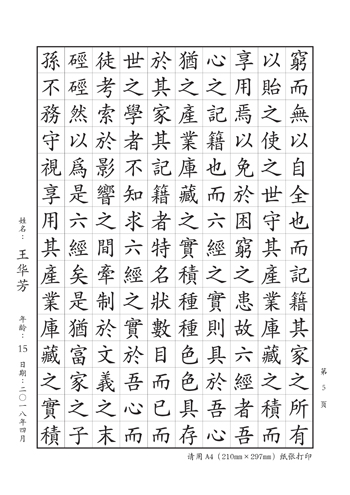 窮而無以自全也而記籍其家之所有
以貽之使之世守其產業庫藏之積而
享用焉以免於困窮之患故六經者吾
心之記籍也而六經之實則具於吾心
猶之產業庫藏之實積種種色色具存
於其家其記籍者特名狀數目而已而
世之學者不知求六經之實於吾心而
徒考索於影響之間牽制於文義之末
硜硜然以為是六經矣是猶富家之子
孫不務守視享用其產業庫藏之實積
姓名：王华芳 年龄：15 日期：二〇一八年四月
第 5 页
请用 A4（210mm×297mm）纸张打印